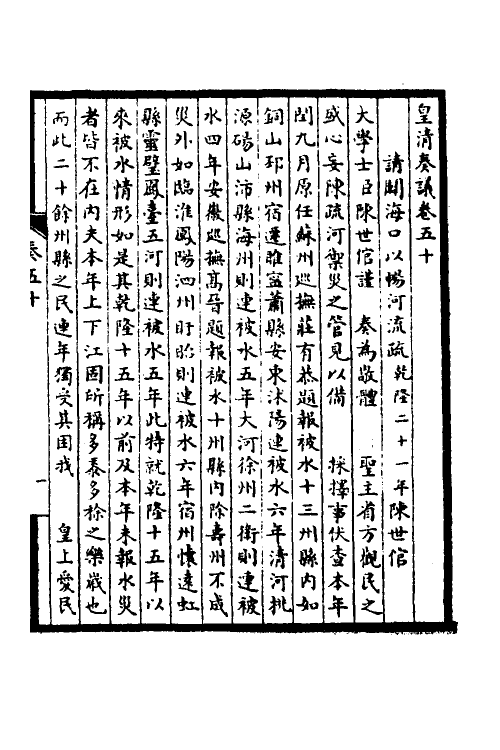 皇清奏議卷五十
請開海口以暢河流疏乾隆二十一年陳世倌
大學士臣陳世倌謹　奏為敬體　聖主省方觀民之
盛心妄陳疏河禦災之管見以備　採擇事伏查本年
閏九月原任蘇州巡撫莊有恭題報被水十三州縣内如
銅山邳州宿遷睢寧蕭縣安東沭陽連被水六年清河桃
源碭山沛縣海州則連被水五年大河徐州二衛則連被
水四年安徽巡撫高晉題報被水十州縣内除壽州不成
災外如臨淮鳳陽泗州盱眙則連被水六年宿州懷遠虹
縣靈璧鳳臺五河則連被水五年此特就乾隆十五年以
來被水情形如是其乾隆十五年以前及本年未報水災
者皆不在内夫本年上下江固所稱多黍多稌之樂歲也
而此二十餘州縣之民連年獨受其困我　皇上愛民
卷五十
一